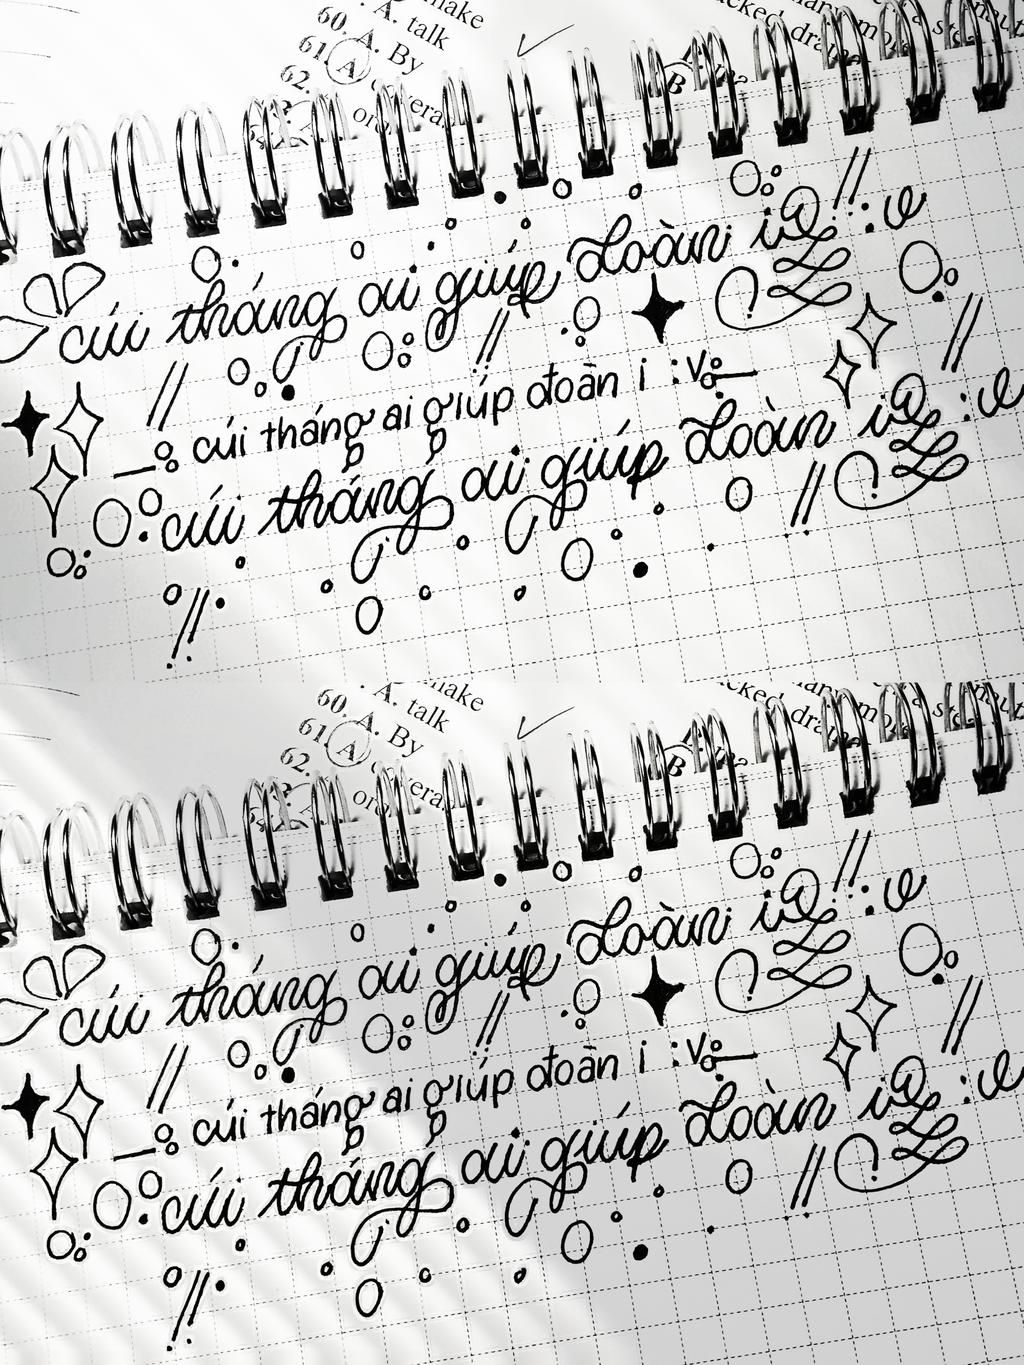 make
60. A. talk
61. A. By
62.
cúi tháng ai giúp đoàn i :v
cúi tháng ai giúp đoàn i :v
cúi tháng ai giúp đoàn i :v
make
60. A. talk
61. A. By
62.
cúi tháng ai giúp đoàn i :v
cúi tháng ai giúp đoàn i :v
cúi tháng ai giúp đoàn i :v